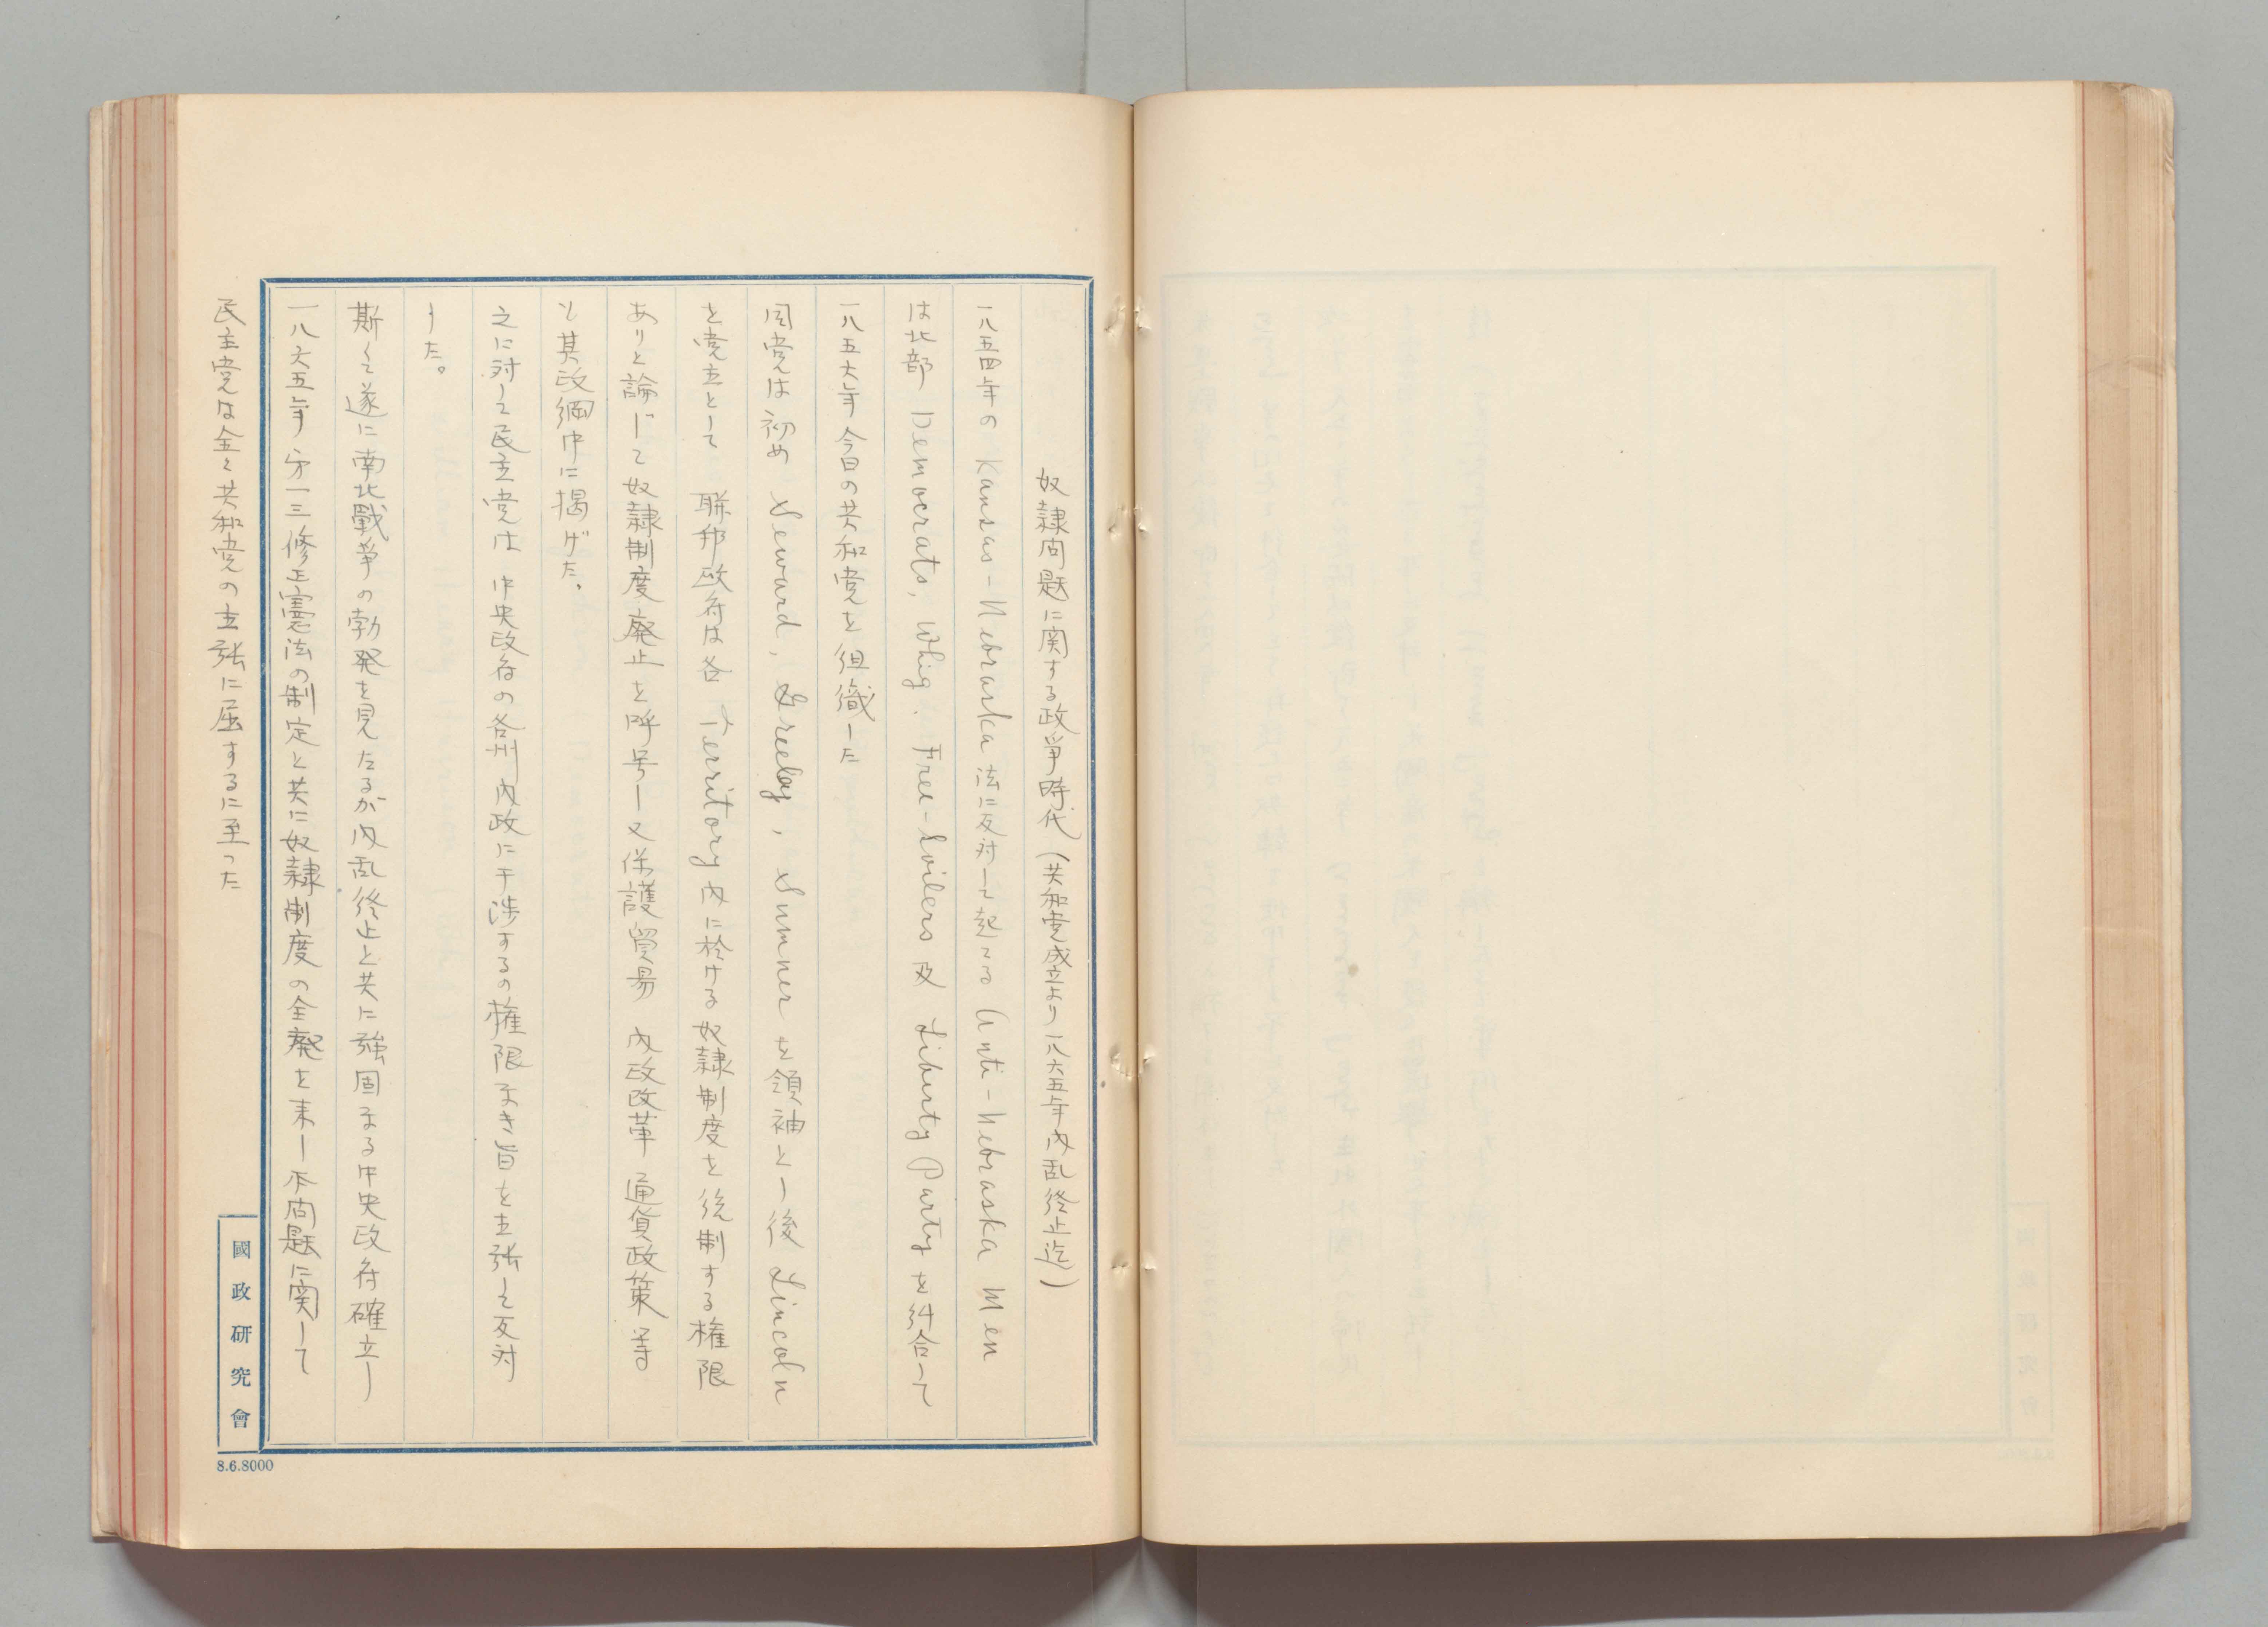 奴隷問題に関する政爭時代(共和党成立より一八六五年内乱終止迄)
一八五四年の Kansas-Nebraska 法に反対して起てる Anti-Nebraska Men
は北部 Democrats, Whig. Free-Soilers 及 Liberty Party を糾合して
一八五六年今日の共和党を組織した
同党は初め Seward, Greeley, Sumner を領袖とし後 Lincoln
を党主として 聯邦政府は各 Territory 内に於ける奴隷制度を統制する権限
ありと論じて奴隷制度廃止を呼号し又保護貿易 内政改革 通貨政策等
も其政綱中に掲げた。
之に対して民主党は 中央政府の各州内政に干渉するの権限なき旨を主張して反対
した。
斯くて遂に南北戰爭の勃発を見たるが内乱終止と共に強固なる中央政府確立し
一八六五年第一三修正憲法の制定と共に奴隷制度の全廃を来し本問題に関して
民主党は全く共和党の主張に屈するに至った
國政研究會
8.6.8000